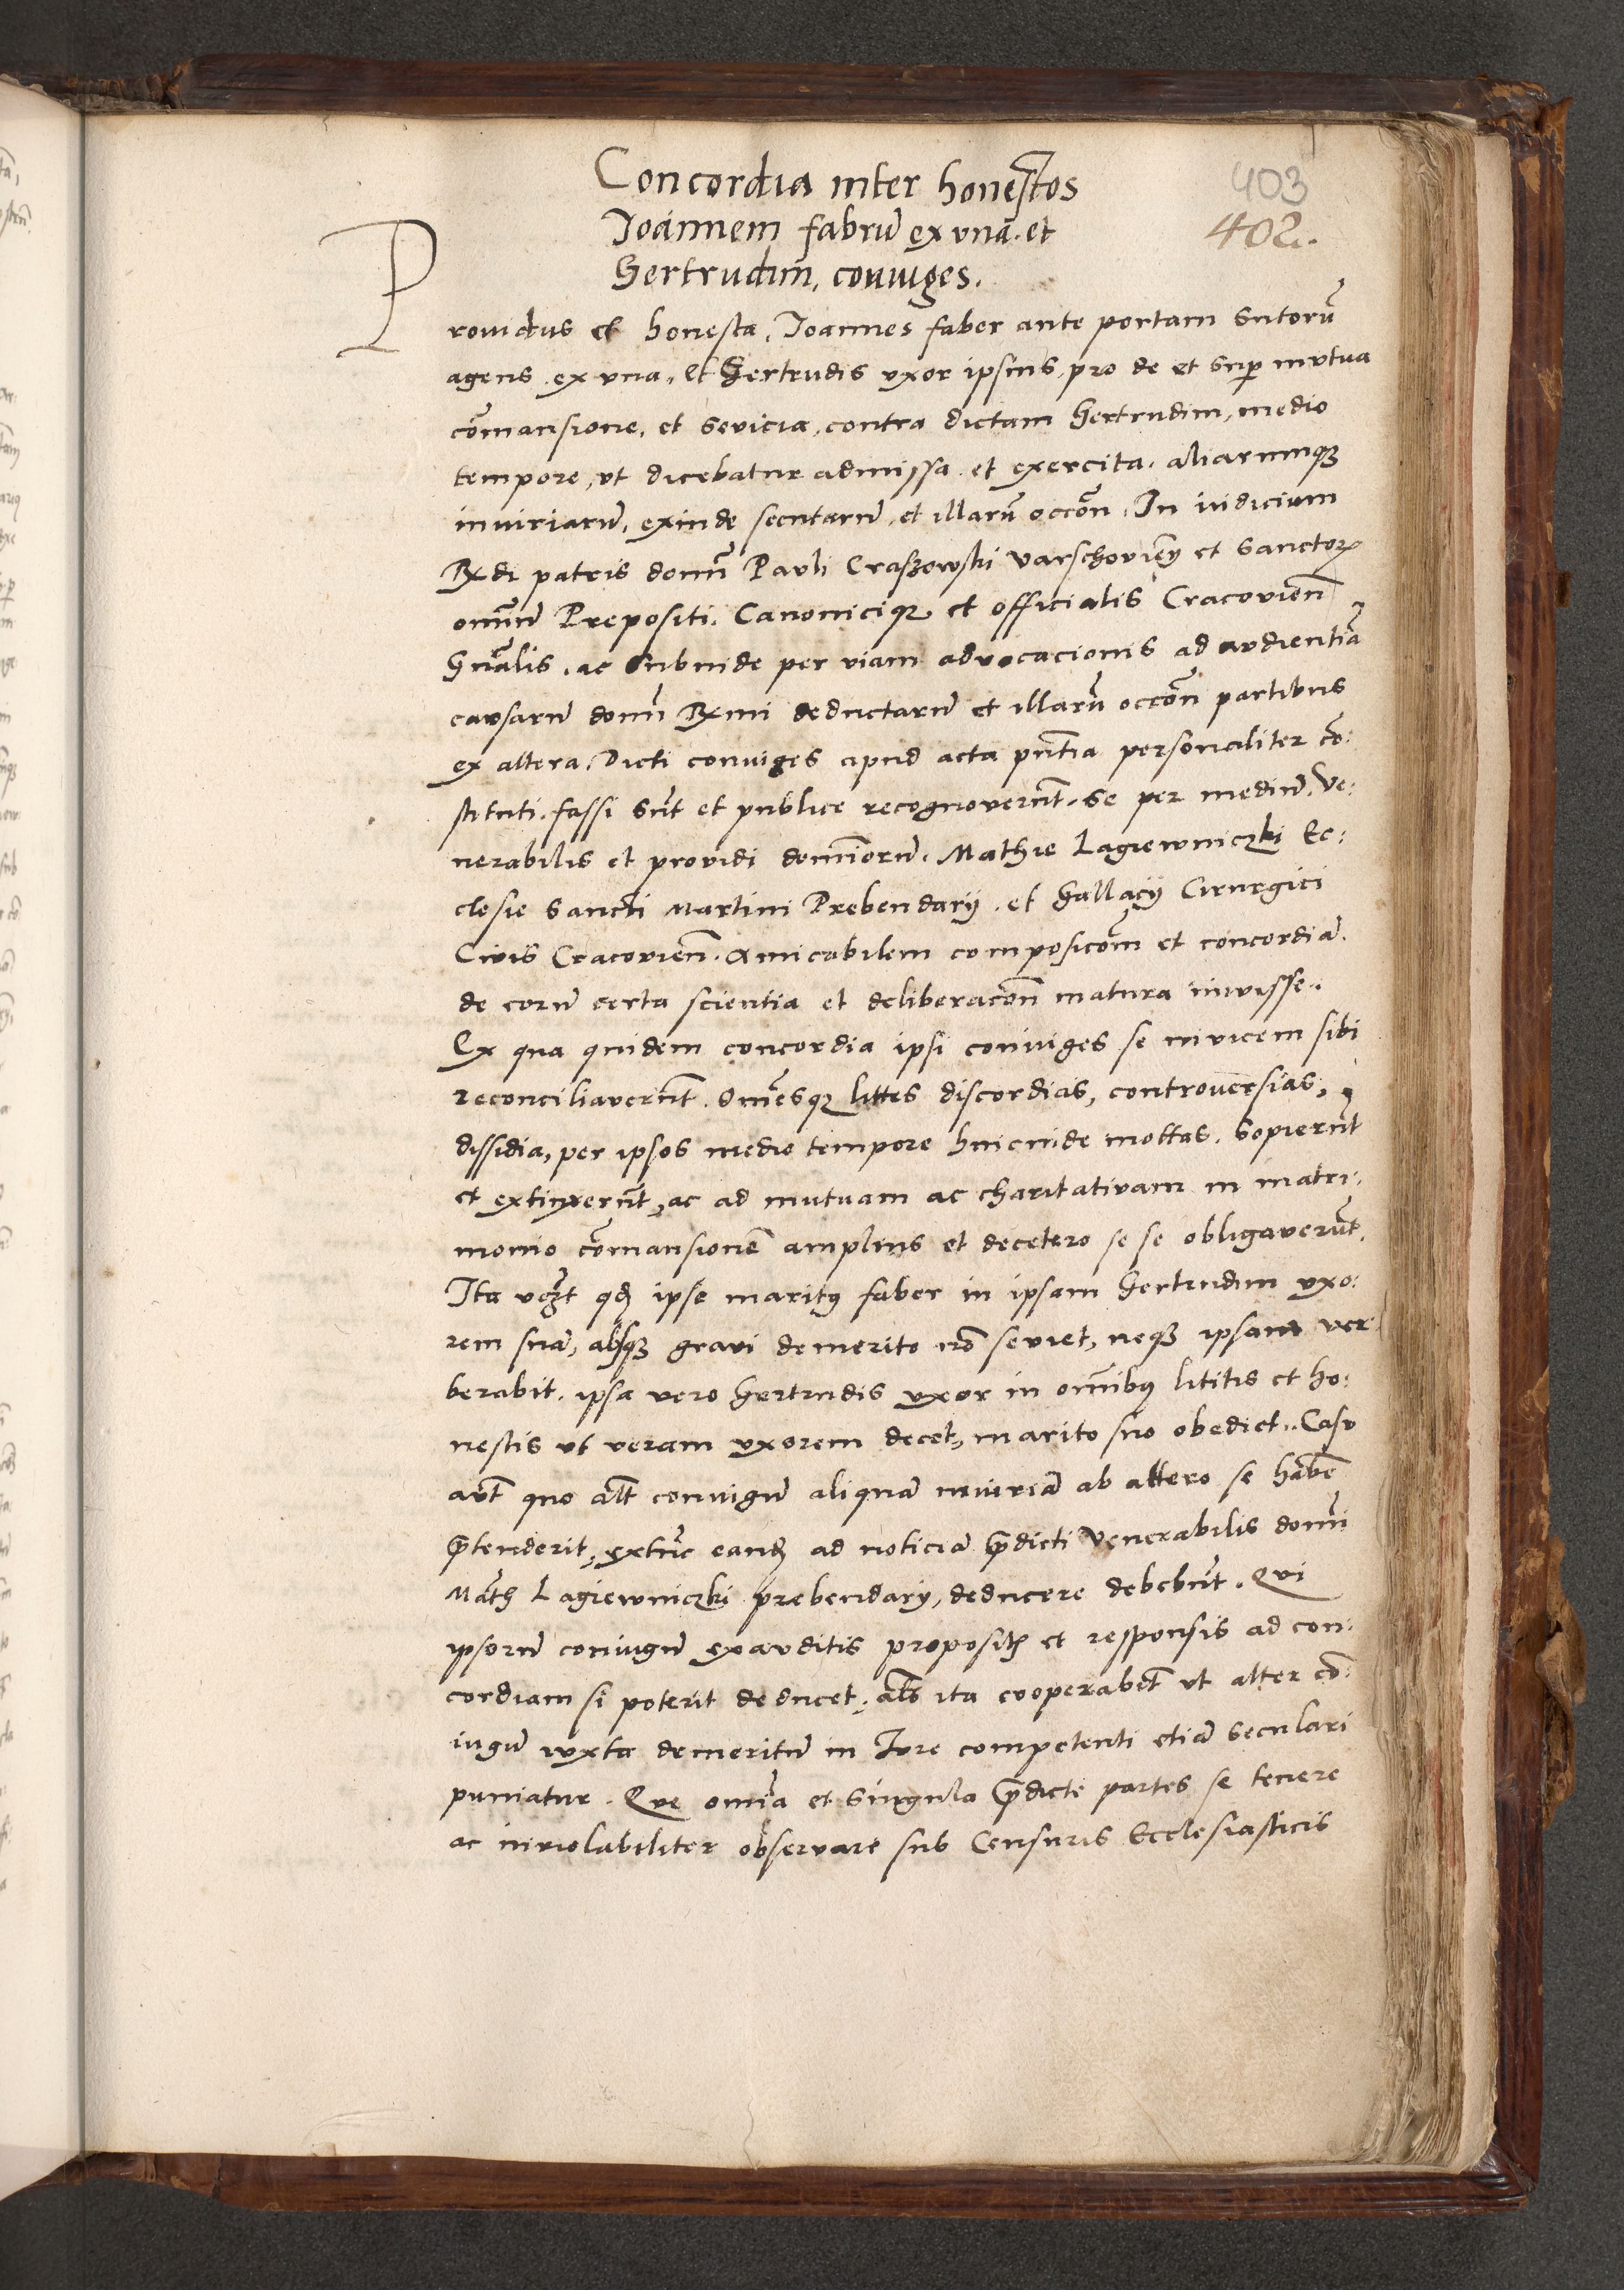 Concordia inter honestos
403
Joannem fabrũ ex vna. et
402.
Gertrudim, coniuges.
Prouidus et honesta, Joannes faber ante portam Sutorũ
agens ex vna, et Gertrudis vxor ipsius, pro de et sup mutua
cōmansione, et sevicia, contra dictam Gertrudim, medio
tempore, vt dicebatur admissa et exercita, aliarumq;
iniuriarũ, exinde secutarũ, et illarũ occōn. In iudicium
Rx̃di patris domñ Pauli Craszowski Varschovieñ et Sanctorꝝ
omñiũ Prepositi, Canonicique et officialis Cracovieñ
Gñalis, ac subinde per viam advocacionis ad audientiã
causarũ domñ Rx̃mi deductarũ et illarũ occōn partibus
ex altera, Dicti coniuges apud acta pñtia personaliter cō:
stituti, fassi sũt et publice recognoverũt, se per mediũ Ve:
nerabilis et providi domĩorũ, Mathie Lagiewniczki Ec:
clesie Sancti Martini Prebendarij, et Gallacij Cirurgici
Civis Cracovieñ, Amicabilem composicõm et concordiã,
de eorũ certa scientia et deliberacõn matura inivisse.
Ex qua quidem concordia ipsi coniuges se invicem sibi
reconciliaverũt, Om̃esq; littes discordias, controversias,
dissidia, per ipsos medio tempore hincinde mottas, Sopierũt
et extinxerũt, ac ad mutuam ac charitativam in matri:
monio cōmansionẽ amplius et decetero se se obligaverũt,
Ita vczt qđ ipse maritꝰ faber in ipsam Gertrudim vxo:
rem suã, absq; gravi demerito nō seviet, neq; ipsam ver
berabit, ipsa vero Gertrudis vxor in omñibꝰ lititis et ho:
nestis vt veram vxorem decet, marito suo obediet. Casu
aũt quo alt̃ coniugũ aliquã iniuriã ab altero se habẽ
p̃tenderit, extũc eandẽ ad noticiã p̃dicti Venerabilis domñi
Math̃ Lagiewniczki prebendarij, deducere debebũt. Qui
ipsorũ coniugũ exauditis propositis et responsis ad con:
cordiam si poterit deducet, als̃ ita cooperabit̃ vt alter cō:
iugũ iuxta demeritũ in Jure competenti etiã Seculari
puniatur. Que omĩa et singula p̃dicte partes se tenere
ac inviolabiliter observare sub Censuris Ecclesiasticis